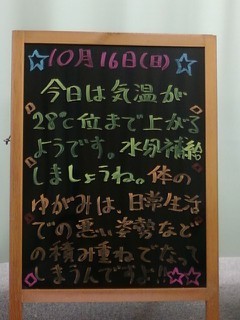 ☆10月16日(日)☆
今日は気温が
28℃位まで上がる
ようです。水分補給
しましょうね。体の
ゆがみは、日常生活
での悪い姿勢など
の積み重ねでなって
しまうんですよ!!☆☆